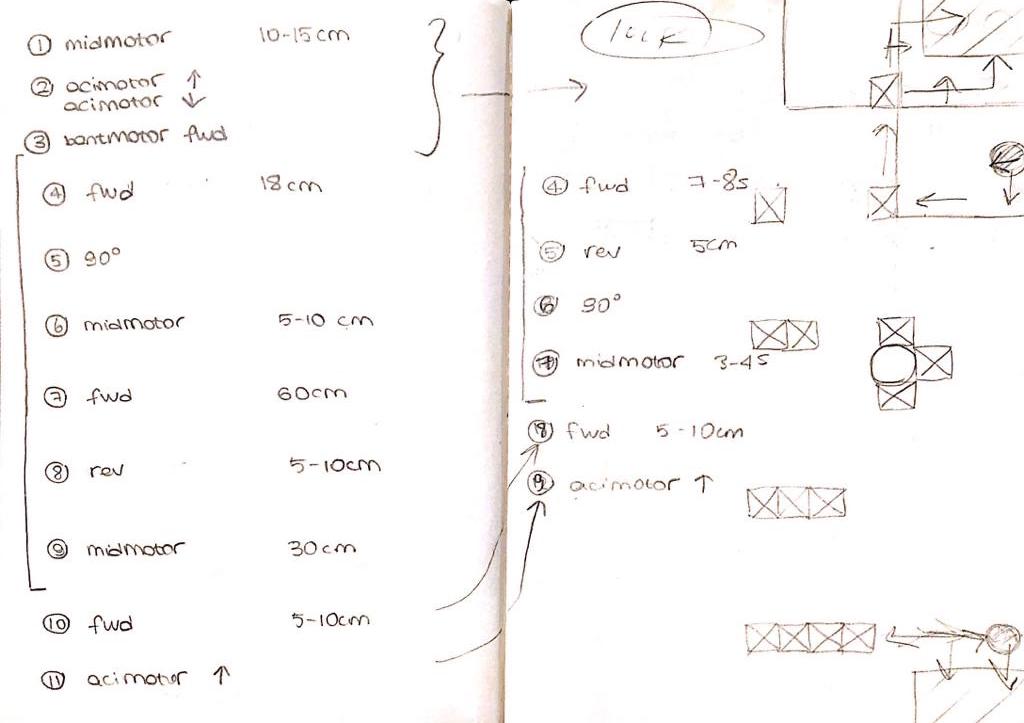 ① midmotor 10-15cm
② acimotor ↑
acimotor ↓
③ bantmotor fwd
④ fwd 18cm
⑤ 90°
⑥ midmotor 5-10 cm
⑦ fwd 60cm
⑧ rev 5-10cm
⑨ midmotor 30cm
⑩ fwd 5-10cm
⑪ acimotor ↑
④ fwd 7-8s
⑤ rev 5cm
⑥ 90°
⑦ midmotor 3-4s
⑧ fwd 5-10cm
⑨ acimotor ↑